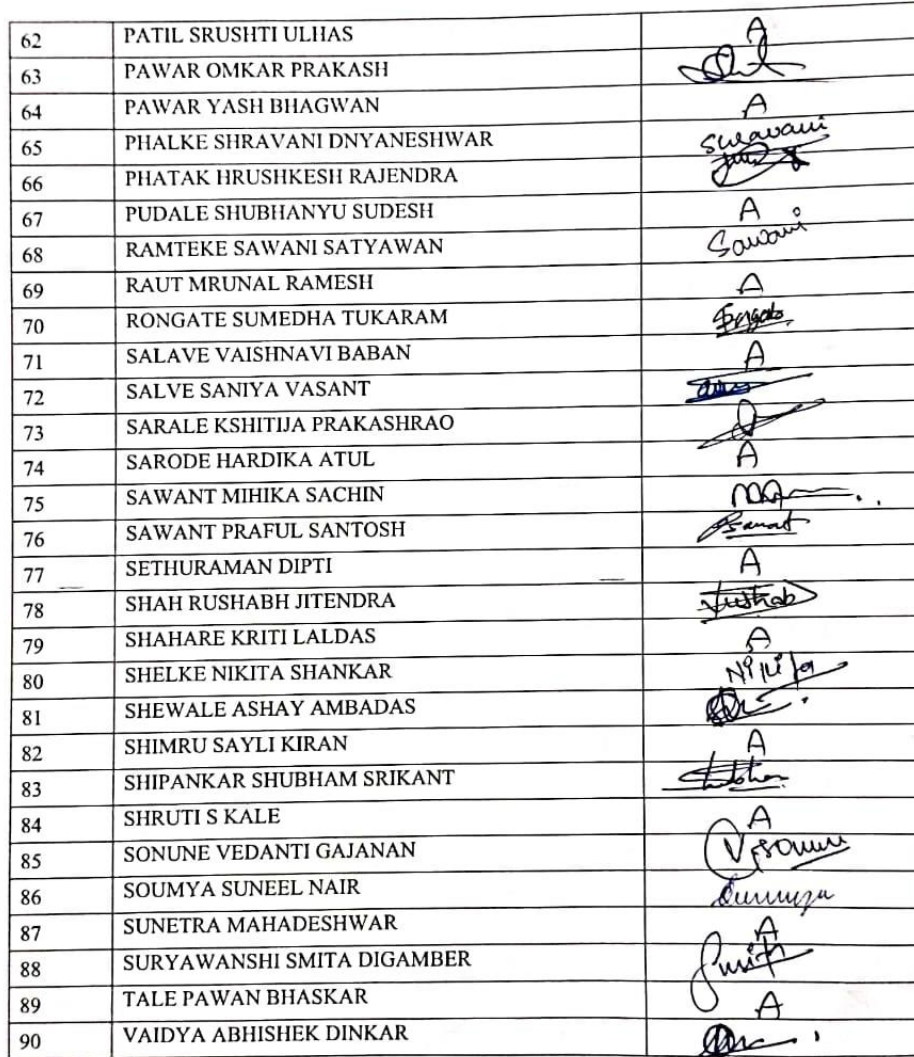 62 PATIL SRUSHTI ULHAS A
63 PAWAR OMKAR PRAKASH
64 PAWAR YASH BHAGWAN A
65 PHALKE SHRAVANI DNYANESHWAR Shravani
66 PHATAK HRUSHKESH RAJENDRA
67 PUDALE SHUBHANYU SUDESH A
68 RAMTEKE SAWANI SATYAWAN Sawani
69 RAUT MRUNAL RAMESH A
70 RONGATE SUMEDHA TUKARAM
71 SALAVE VAISHNAVI BABAN A
72 SALVE SANIYA VASANT
73 SARALE KSHITIJA PRAKASHRAO
74 SARODE HARDIKA ATUL A
75 SAWANT MIHIKA SACHIN
76 SAWANT PRAFUL SANTOSH
77 SETHURAMAN DIPTI A
78 SHAH RUSHABH JITENDRA
79 SHAHARE KRITI LALDAS A
80 SHELKE NIKITA SHANKAR Nikita
81 SHEWALE ASHAY AMBADAS
82 SHIMRU SAYLI KIRAN A
83 SHIPANKAR SHUBHAM SRIKANT
84 SHRUTI S KALE A
85 SONUNE VEDANTI GAJANAN
86 SOUMYA SUNEEL NAIR
87 SUNETRA MAHADESHWAR A
88 SURYAWANSHI SMITA DIGAMBER
89 TALE PAWAN BHASKAR A
90 VAIDYA ABHISHEK DINKAR